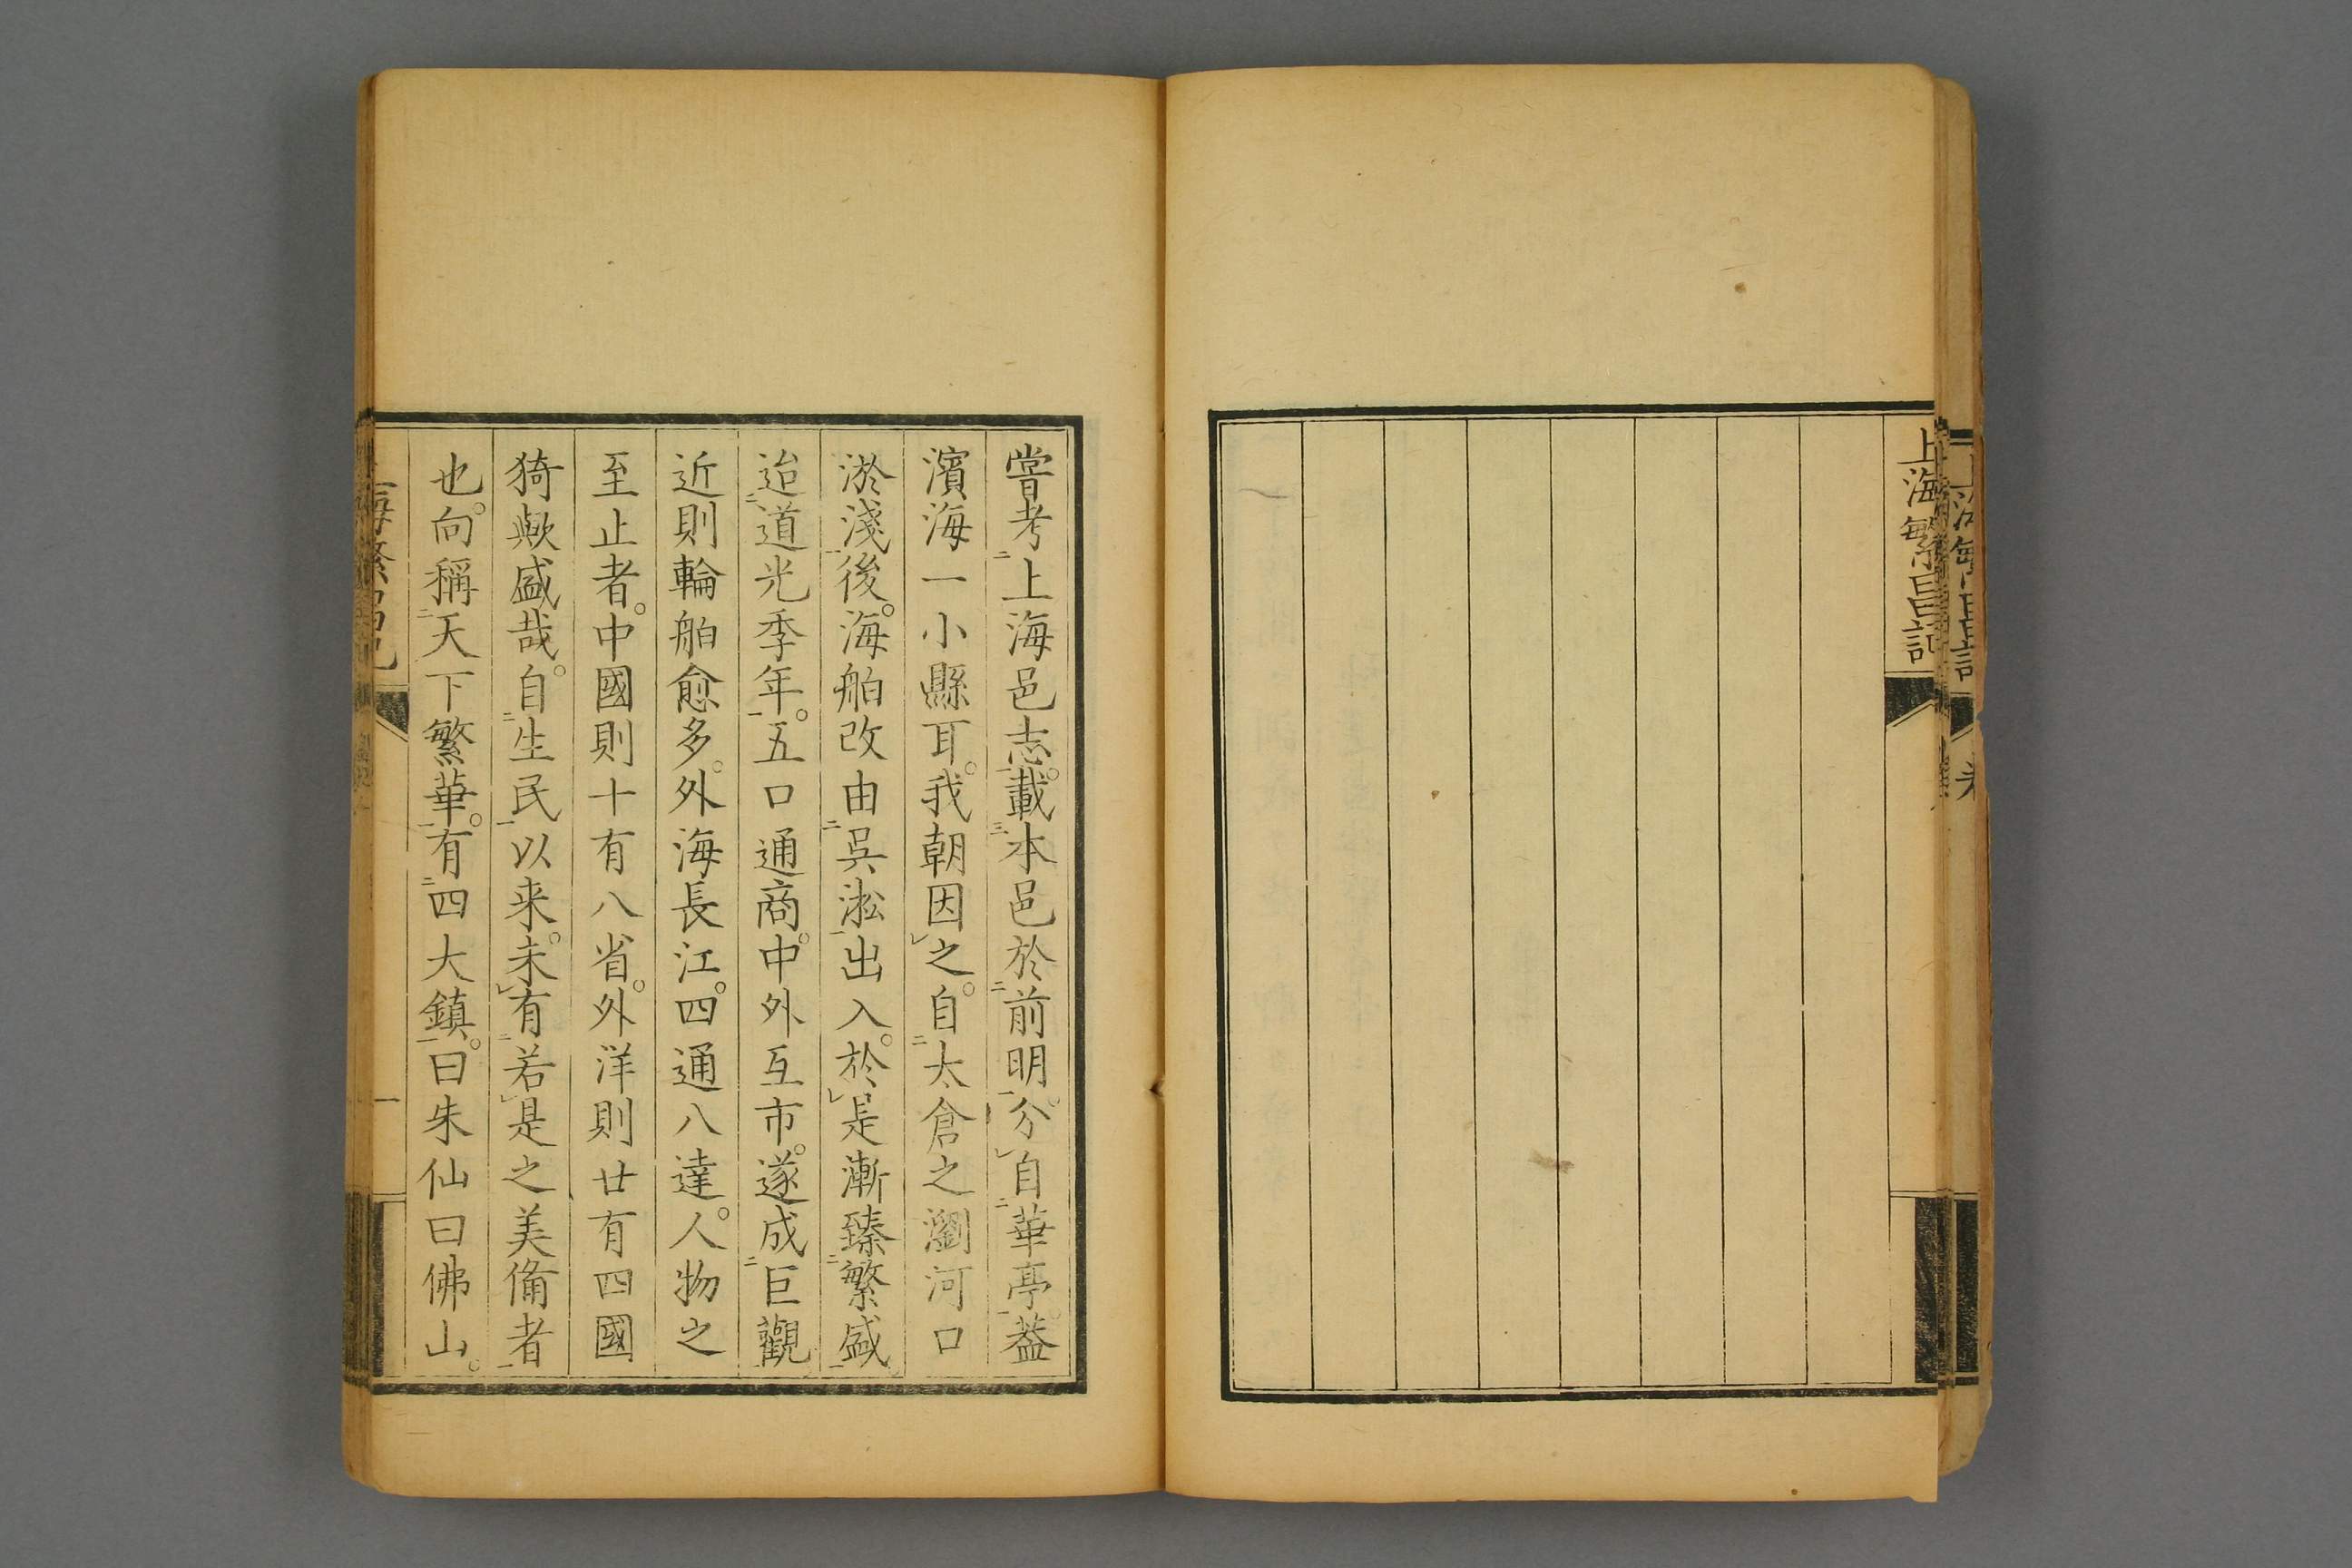 上海繁昌記
嘗考上海邑志。載本邑於前明。分自華亭。葢
濱海一小縣耳。我朝因之。自太倉之瀏河口
淤淺後。海舶改由吳淞出入。於是漸臻繁盛
迨道光季年。五口通商。中外互市。遂成巨觀
近則輪舶愈多。外海長江。四通八達。人物之
至止者。中國則十有八省。外洋則廿有四國
猗歟盛哉。自生民以来。未有若是之美備者
也。向稱天下繁華。有四大鎮。曰朱仙曰佛山。
一